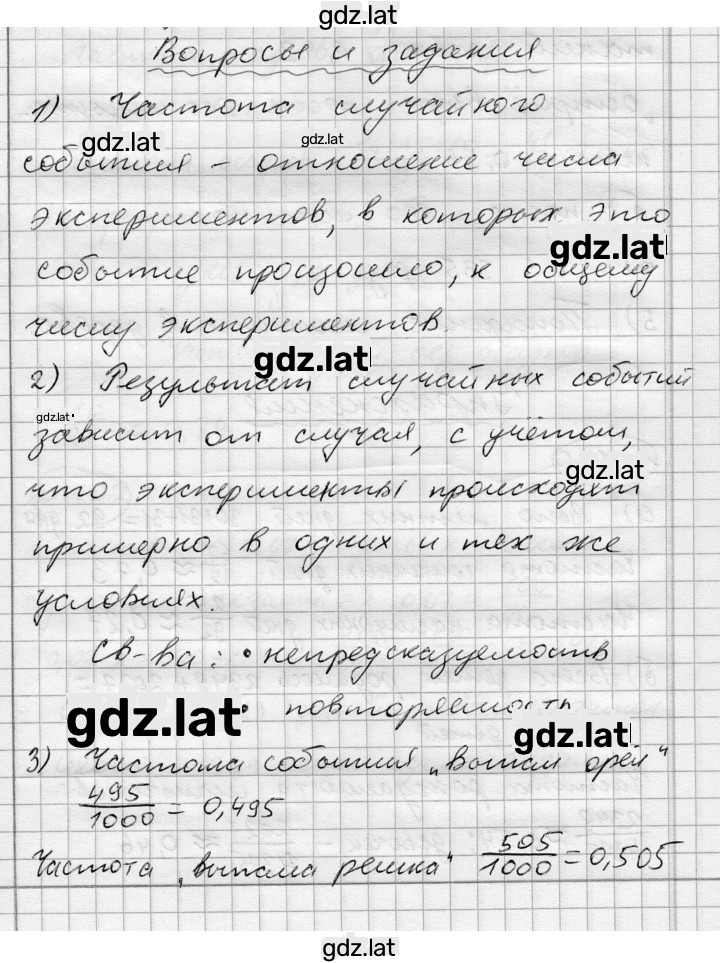 gdz.lat
Вопросы и задания
1) Частота случайного
gdz.lat gdz.lat
события - отношение числа
экспериментов, в которых это
gdz.lat
событие произошло, к общему
числу экспериментов
gdz.lat
2) Результат случайных событий
gdz.lat
зависит от случая, с учётом,
gdz.lat
что эксперименты происходят
примерно в одних и тех же
условиях.
Св-ва: • непредсказуемость
gdz.lat • повторяемость
gdz.lat
3) Частота события „выпал орёл“
495/1000 = 0,495
Частота „выпала решка“ 505/1000 = 0,505
gdz.lat